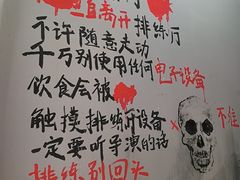 直离开排练厅
不许随意走动
千万别使用任何电子设备
饮食会被
触摸排练厅设备
一定要听学渭的话
排练别回头
不准